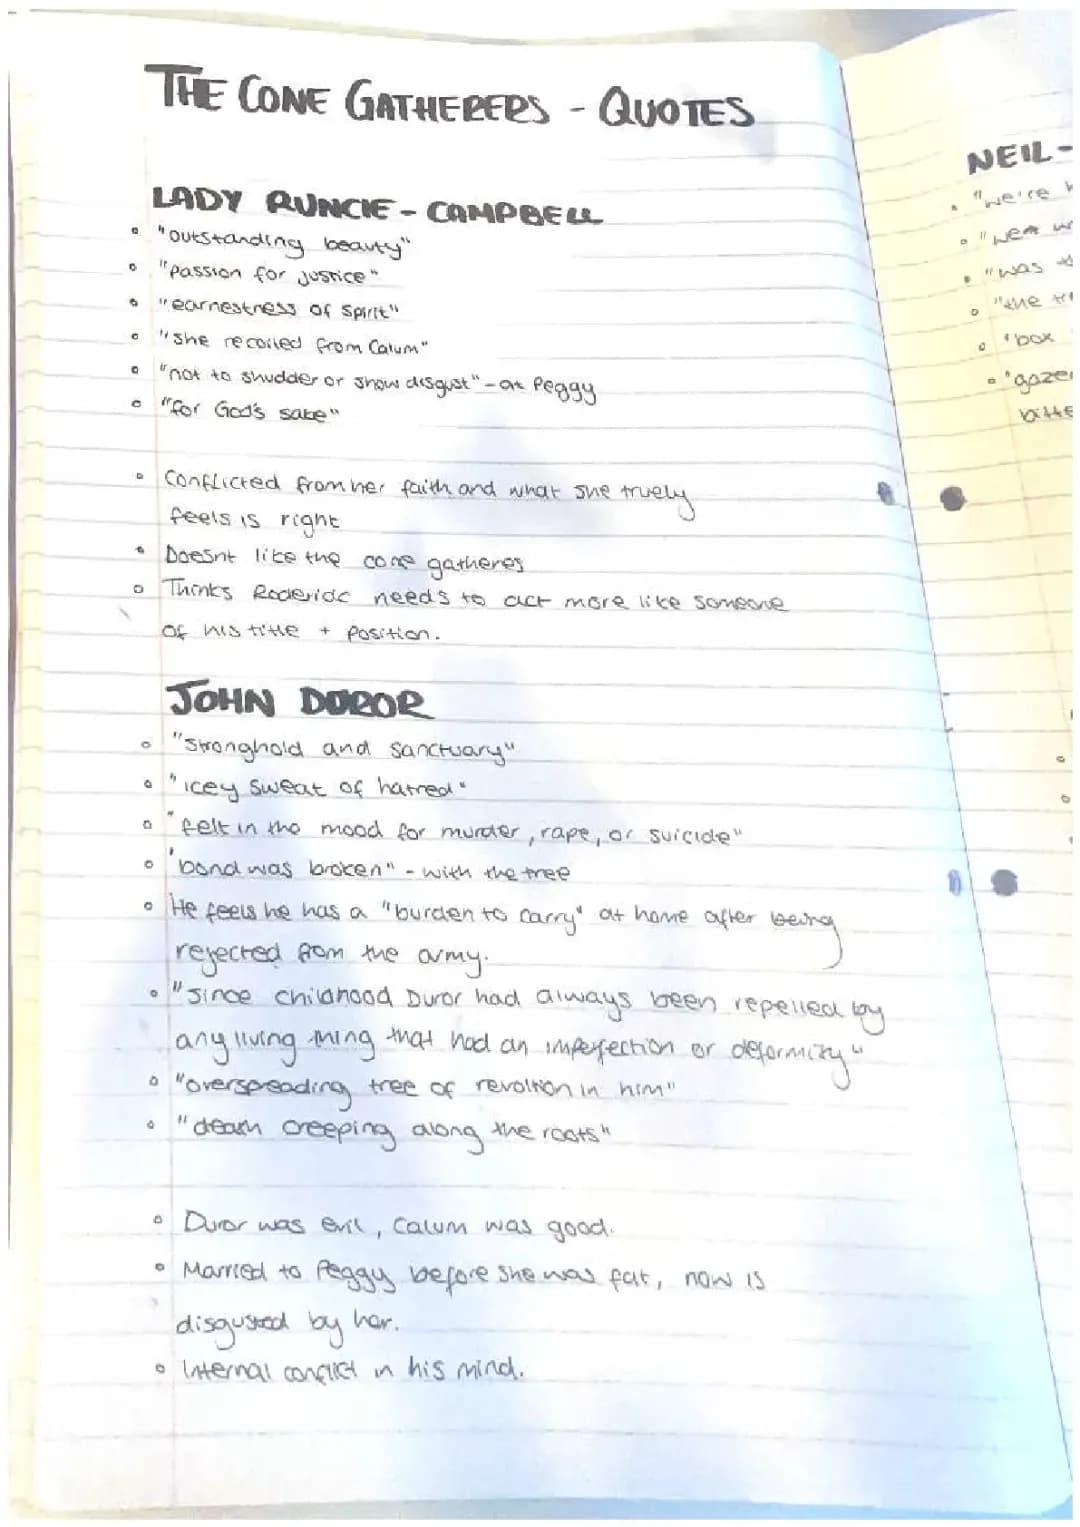 THE CONE GATHERERS - QUOTES
LADY RUNCIE - CAMPBELL
• "outstanding beauty"
• "passion for justice"
• "earnestness of spirit"
• "she recoiled from Calum"
• "not to shudder or show disgust" - at Peggy
• "for God's sake"
• Conflicted from her faith and what she truely
feels is right
• Doesnt like the cone gatheres
• Thinks Roderick needs to act more like someone
of his title + position.
JOHN DUROR
• "stronghold and sanctuary"
• "icey sweat of hatred"
• "felt in the mood for murder, rape, or suicide"
• "bond was broken" - with the tree
• He feels he has a "burden to carry" at home after being
rejected from the army.
• "Since childhood Duror had always been repelled by
any living thing that had an imperfection or deformity"
• "overspreading tree of revoltion in him"
• "death creeping along the roots"
• Duror was evil, Calum was good.
• Married to Peggy before she was fat, now is
disgusted by her.
• Internal conflict in his mind.
NEIL -
• "we're
• "were
• "was
• "the
• "box
• "gaze